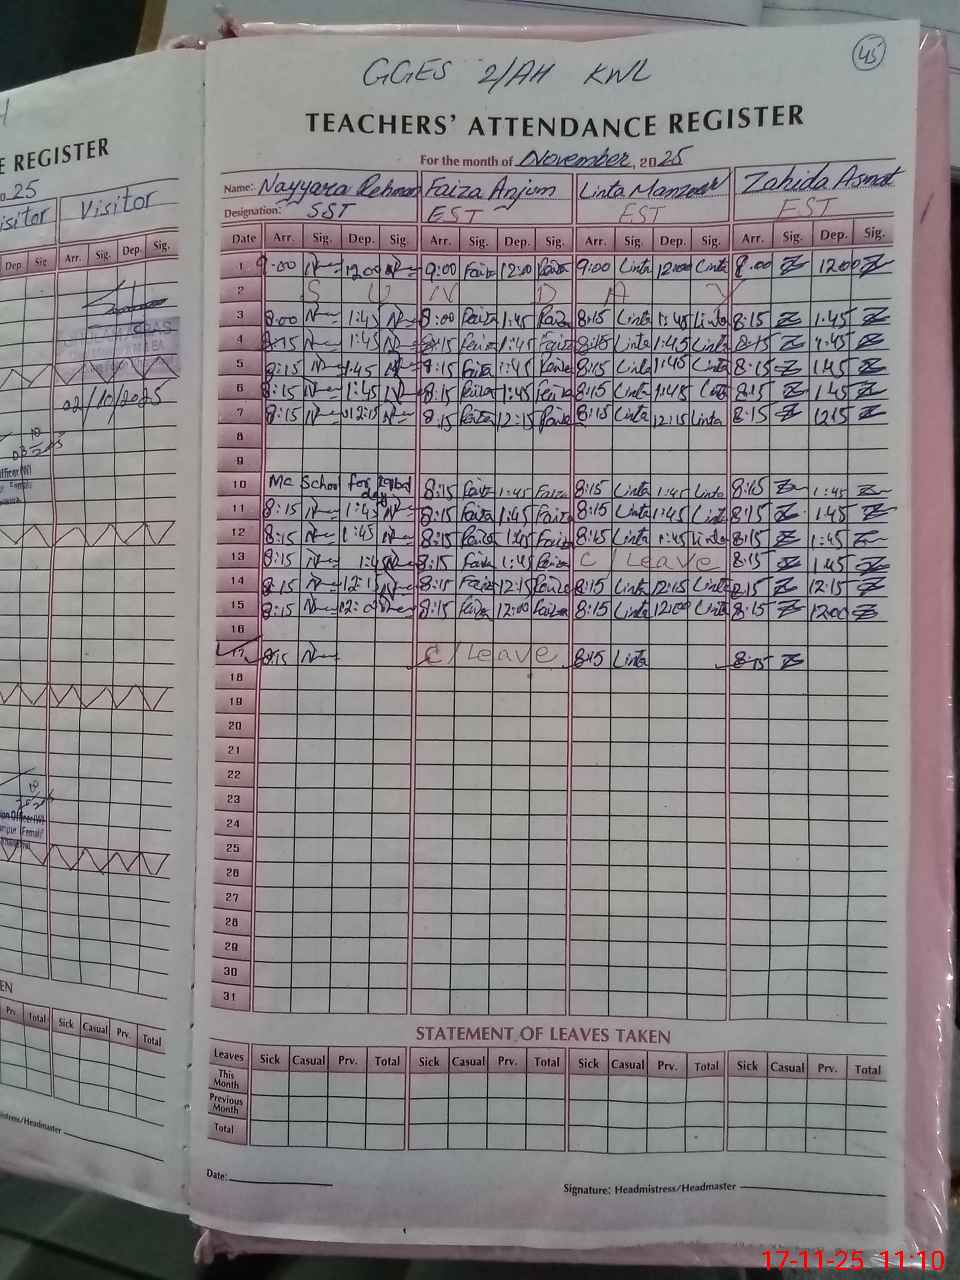 GGES 2/AH KWL
45
TEACHERS' ATTENDANCE REGISTER
For the month of November, 2025
Name: Nayyara Rehman Faiza Anjum Linta Manzoor Zahida Asmat
Designation: SST EST EST EST
Date Arr. Sig. Dep. Sig. Arr. Sig. Dep. Sig. Arr. Sig. Dep. Sig. Arr. Sig. Dep. Sig.
1 9:00 12:00 9:00 Faiza 12:00 Faiza 9:00 Linta 12:00 Linta 9:00 12:00
2 S U N D A Y
3 8:00 1:45 8:00 Faiza 1:45 Faiza 8:15 Linta 1:45 Linta 8:15 1:45
4 8:15 1:45 8:15 Faiza 1:45 Faiza 8:15 Linta 1:45 Linta 8:15 1:45
5 8:15 1:45 8:15 Faiza 1:45 Faiza 8:15 Linta 1:45 Linta 8:15 1:45
6 8:15 1:45 8:15 Faiza 1:45 Faiza 8:15 Linta 1:45 8:15 1:45
7 8:15 12:15 8:15 Faiza 12:15 Faiza 8:15 Linta 12:15 Linta 8:15 12:15
8
9
10 Mc School for day 8:15 Faiza 1:45 Faiza 8:15 Linta 1:45 Linta 8:15 1:45
11 8:15 1:45 8:15 Faiza 1:45 Faiza 8:15 Linta 1:45 Linta 8:15 1:45
12 8:15 1:45 8:15 Faiza 1:45 Faiza 8:15 Linta 1:45 Linta 8:15 1:45
13 8:15 1:45 8:15 Faiza 1:45 Faiza C/Leave 8:15 1:45
14 8:15 12:15 8:15 Faiza 12:15 Faiza 8:15 Linta 12:15 Linta 8:15 12:15
15 8:15 12:00 8:15 Faiza 12:00 Faiza 8:15 Linta 12:00 Linta 8:15 12:00
16
17 8:15 C/Leave 8:15 Linta 8:15
18
19
20
21
22
23
24
25
26
27
28
29
30
31
STATEMENT OF LEAVES TAKEN
Leaves Sick Casual Prv. Total Sick Casual Prv. Total Sick Casual Prv. Total Sick Casual Prv. Total
This Month
Previous Month
Total
Date:
Signature: Headmistress/Headmaster
E REGISTER
25
isitor Visitor
Dep. Sig. Arr. Sig. Dep. Sig.
02/10/2025
EN
Prv. Total Sick Casual Prv. Total
mistress/Headmaster
17-11-25 11:10